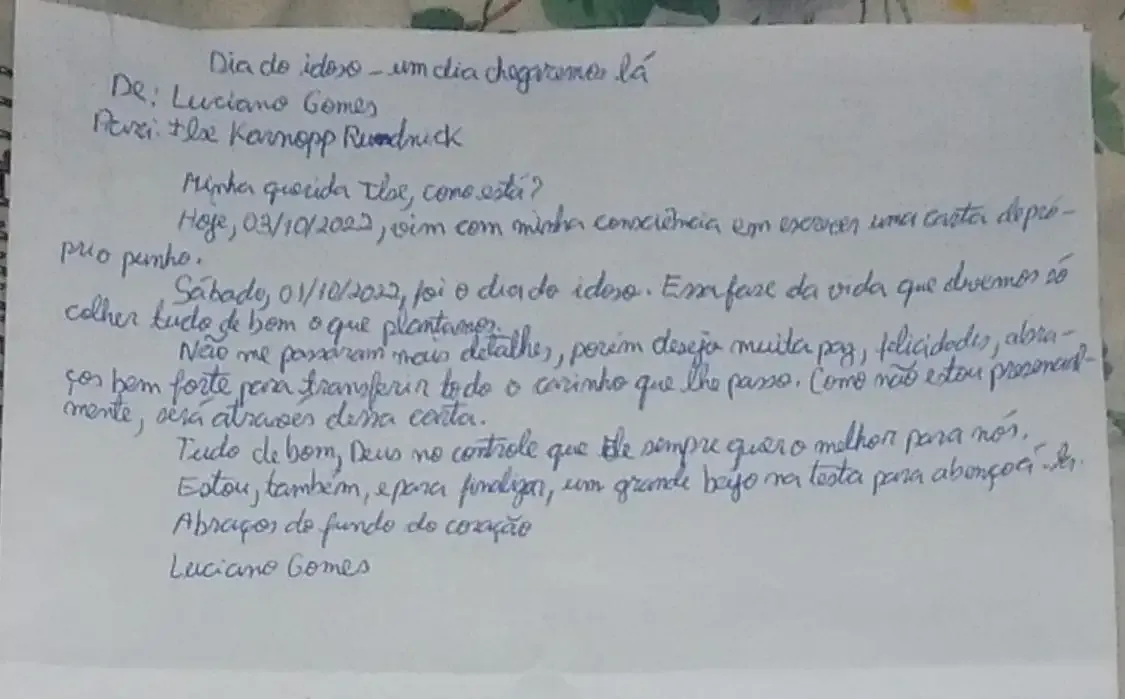 Dia do idoso - um dia chegaremos lá
De: Luciano Gomes
Para: Ilse Karnopp Rundnick
Minha querida Ilse, como está?
Hoje, 03/10/2022, vim com minha consciência em escrever uma carta de pró-
prio punho.
Sábado, 01/10/2022, foi o dia do idoso. Essa fase da vida que devemos só
colher tudo de bom o que plantamos.
Não me passaram mais detalhes, porém desejo muita paz, felicidades, abra-
ços bem forte para transferir todo o carinho que lhe passo. Como não estou presencial-
mente, será através dessa carta.
Tudo de bom, Deus no controle que Ele sempre quer o melhor para nós.
Estou, também, e para finalizar, um grande beijo na testa para abençoá-la.
Abraços do fundo do coração
Luciano Gomes